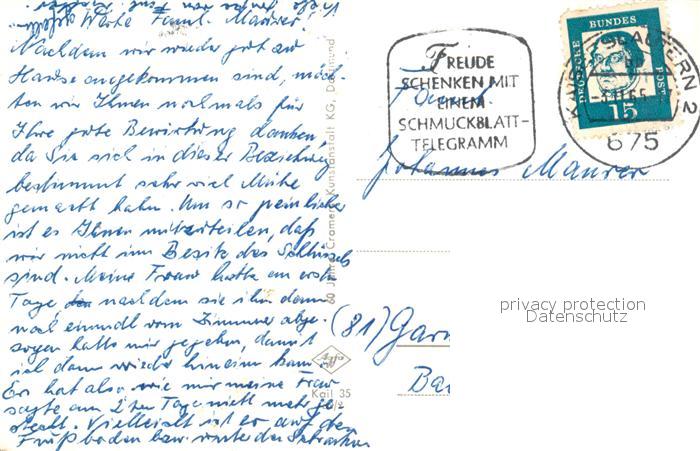 Werte Famil. Maurer!
Nachdem wir wieder gut zu
Hause angekommen sind, möch-
ten wir Ihnen nochmals für
Ihre gute Bewirtung danken,
da Sie sich in dieser Beziehung
bestimmt sehr viel Mühe
gemacht haben. Um so peinlicher
ist es Ihnen mitzuteilen, daß
wir nicht im Besitz des Schlüssels
sind. Meine Frau hatte am ersten
Tage nachdem sie ihn dann
noch einmal vom Zimmer abge-
zogen hatte mir gegeben, damit
ich dann wieder hinein kann.
Er hat also wie mir meine Frau
sagte am 2ten Tage nicht mehr ge-
steckt. Vielleicht ist er auf dem
Fußboden bzw. unter den Schrank
60 Jahre Cramers Kunstanstalt KG, Dortmund
Agfa
Kail 35
FREUDE
SCHENKEN MIT
EINEM
SCHMUCKBLATT-
TELEGRAMM
DEUTSCHE BUNDESPOST
15
KAISERSLAUTERN 2
675
Johannes Maurer
(81) Garm
Ba
privacy protection
Datenschutz